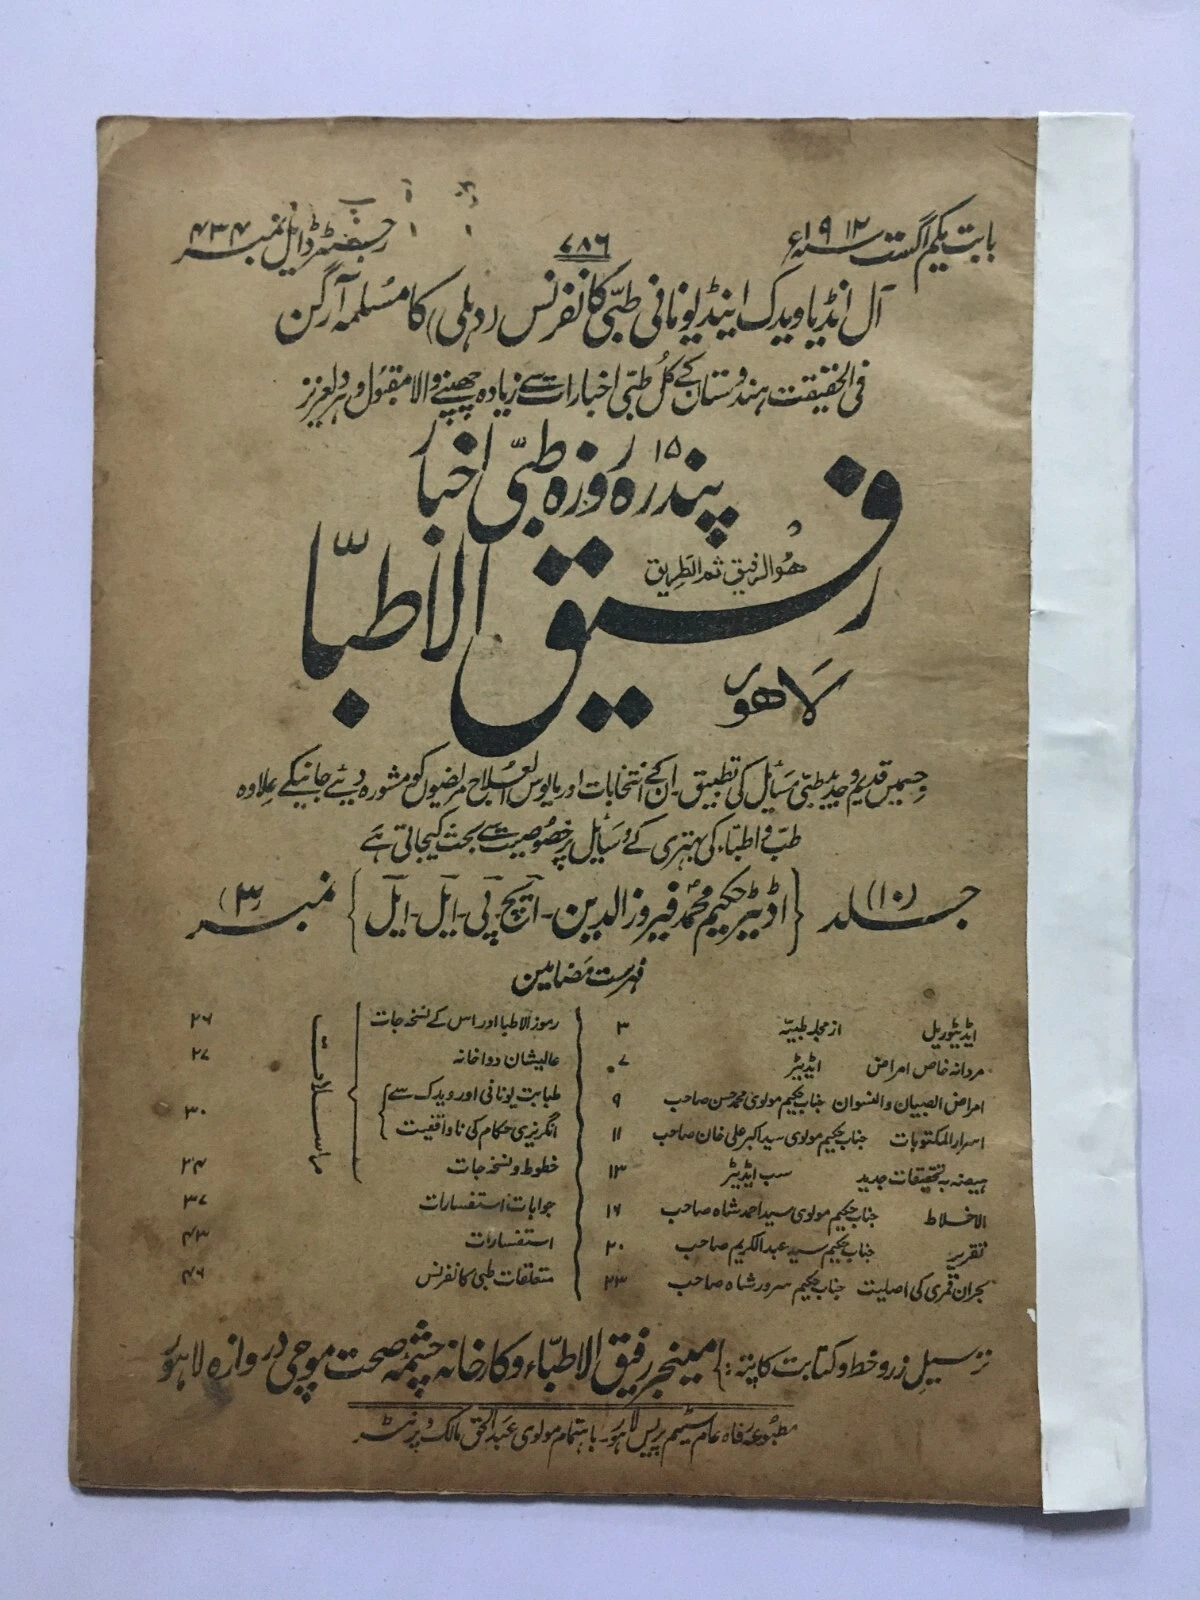 بابت یکم اگست سنہ ۱۹۱۲ء
۷۸۶
رجسٹرڈ ایل نمبر ۴۳۴
آل انڈیا ویدک اینڈ یونانی طبّی کانفرنس (دہلی) کا مسلمہ آرگن
فی الحقیقت ہندوستان کے کُل طبّی اخبارات سے زیادہ چھپنے والا مقبول و ہردلعزیز
۱۵ پندرہ روزہ طبّی اخبار
ھُوالرفیق ثم الطریق
رفیق الاطبّا
لاھور
جسمیں قدیم و جدید طبّی مسائل کی تطبیق۔ ان کے انتخابات اور مایوس العلاج مریضوں کو مشورہ دیئے جانیکے علاوہ
طب و اطبّاء کی بہتری کے وسایل پر خصوصیت سے بحث کیجاتی ہے
جلد (۱۰) {اڈیٹر حکیم محمد فیروزالدین۔ ایچ۔پی۔ایل۔ایل} نمبر (۳)
فہرست مضامین
ایڈیٹوریل از مجلہ طبیّہ ۳
مردانہ خاص امراض ایڈیٹر ۷
امراض الصبیان والنسوان جناب حکیم مولوی محمد حسن صاحب ۹
اسرار المکتوبات جناب حکیم مولوی سید اکبر علی خان صاحب ۱۱
ہیضہ بہ تحقیقات جدید سب ایڈیٹر ۱۳
الاخلاط جناب حکیم مولوی سید احمد شاہ صاحب ۱۶
تقریر جناب حکیم سید عبدالکریم صاحب ۲۰
بحران قمری کی اصلیت جناب حکیم سرور شاہ صاحب ۲۳
مراسلات
رموز الاطبا اور اس کے نسخہ جات ۲۶
عالیشان دواخانہ ۲۷
طبابت یونانی اور ویدک سے
انگریزی حکام کی ناواقفیت ۳۰
خطوط و نسخہ جات ۳۴
جوابات استفسارات ۳۷
استفسارات ۴۳
متعلقات طبی کانفرنس ۴۶
ترسیل زر و خط و کتابت کا پتہ:} مینجر رفیق الاطبّاء و کارخانہ چشمۂ صحت موچی دروازہ لاہور
مطبوعہ رفاہ عام سٹیم پریس لاہور۔ باہتمام مولوی عبدالحق مالک و پرنٹر